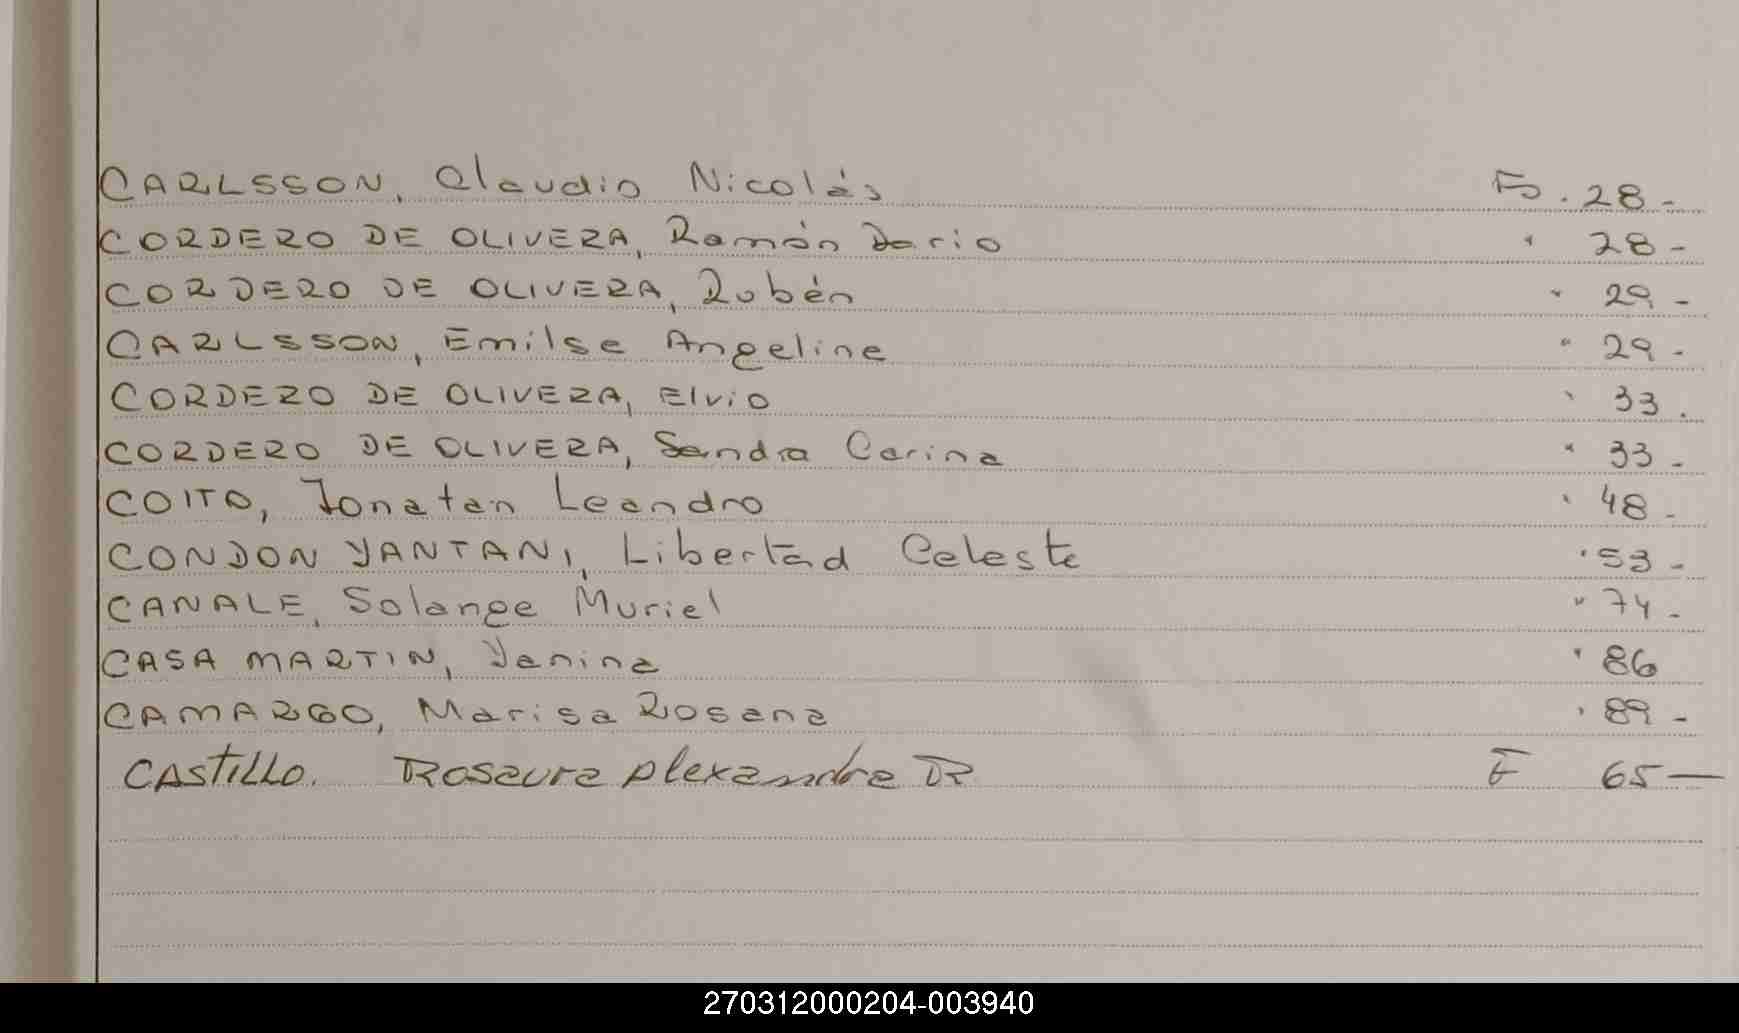 CARLSSON, Claudio Nicolás Fo. 28-
CORDERO DE OLIVERA, Ramón Dario " 28-
CORDERO DE OLIVERA, Rubén " 29-
CARLSSON, Emilse Angeline " 29-
CORDERO DE OLIVERA, Elvio " 33.
CORDERO DE OLIVERA, Sandra Carina " 33-
COITO, Jonatan Leandro " 48-
CONDON YANTANI, Libertad Celeste " 53-
CANALE, Solange Muriel " 74-
CASA MARTIN, Yanina " 86
CAMARGO, Marisa Rosana " 89-
CASTILLO. Rosaura Alexandra R F 65—
270312000204-003940